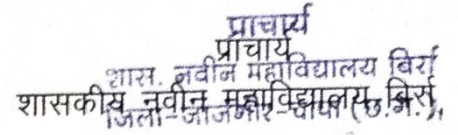 प्राचार्य
प्राचार्य
शास. नवीन महाविद्यालय बिर्रा
शासकीय नवीन महाविद्यालय बिर्रा,
जिला-जांजगीर-चांपा (छ.ग.)